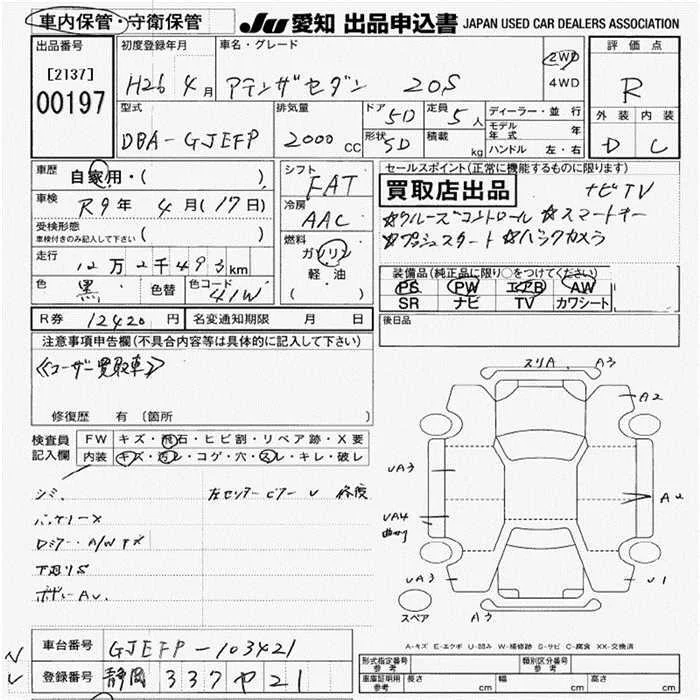 車内保管・守衛保管 JU 愛知 出品申込書 JAPAN USED CAR DEALERS ASSOCIATION
出品番号 初度登録年月 車名・グレード 2WD 評価点
[2137] H26 4月 アテンザセダン 20S 4WD R
00197 型式 排気量 ドア 5D 定員 5人 ディーラー・並行 外装 内装
DBA-GJEFP 2000 CC 形状 5D 積載 kg モデル年式 年 D C
ハンドル 左・右
車歴 自家用・( ) シフト FAT セールスポイント(正常に機能するものに限ります)
車検 R9年 4月(17日) 冷房 AAC 買取店出品 ナビTV
受検形態 ( ) ☆クルーズコントロール ☆スマートキー
車検付きのみ記入して下さい 燃料 ☆プッシュスタート ☆バックカメラ
走行 12万2千493km ガソリン
軽・油 装備品(純正品に限り○をつけてください)
色 黒 色替 色コード 41W ( ) PS PW エアB AW
SR ナビ TV カワシート
R券 12420円 名変通知期限 月 日 後日品
注意事項申告欄(不具合内容等は具体的に記入して下さい)
≪ユーザー買取車≫
修復歴 有 〔箇所 〕
検査員記入欄 FW キズ・飛石・ヒビ割・リペア跡・X要
内装 キズ・汚レ・コゲ・穴・スレ・キレ・破レ
シミ 左センターピラー U 修復
バッテリーX
ロミラー A/Wキズ
下廻りS
ボディーAU
スリA A3
A2
UA3
UA4 曲がり
UA3 U1
スペア A3
A-キズ E-エクボ U-凹み W-補修跡 S-サビ C-腐食 XX-交換済
車台番号 GJEFP-103421
登録番号 静岡 337 ヤ 21
形式指定番号 参考 類別区分番号 参考
車庫証明用 参考 長さ cm 幅 cm 高さ cm